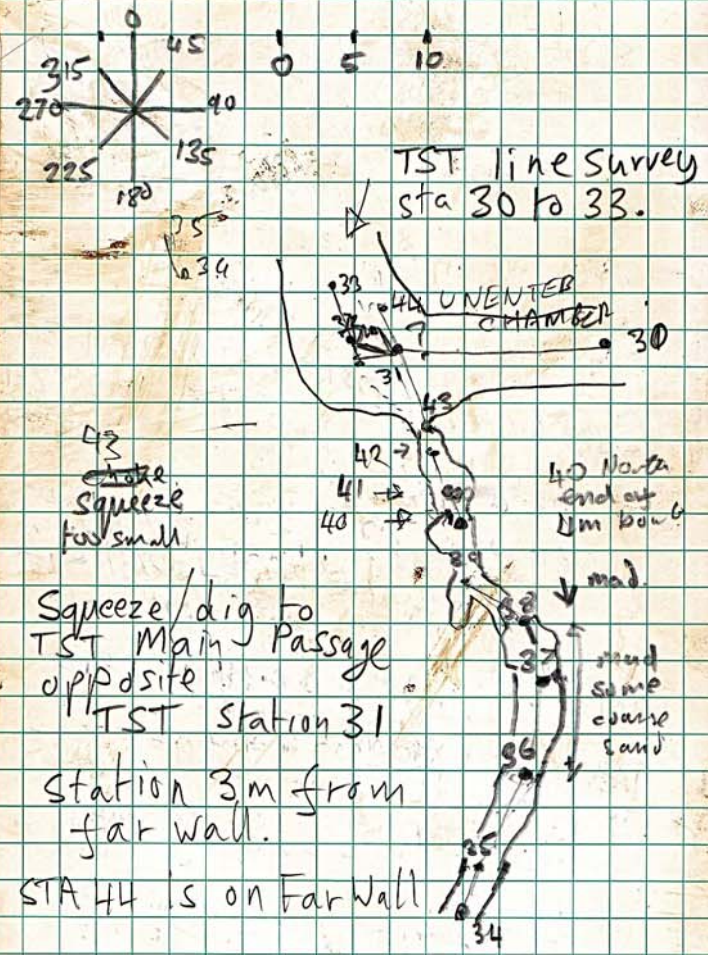 0
45
90
135
180
225
270
315
0 5 10
TST line survey
sta 30 to 33.
35
34
33
44 UNENTED
CHAMBER
7
30
31
43
42 →
41 →
40 →
43
Squeeze
too small
40 North
end of
39
38
mud
37
mud
some
coarse
sand
36
35
34
Squeeze/dig to
TST Main Passage
opposite
TST Station 31
Station 3m from
far wall.
STA 44 is on Far Wall